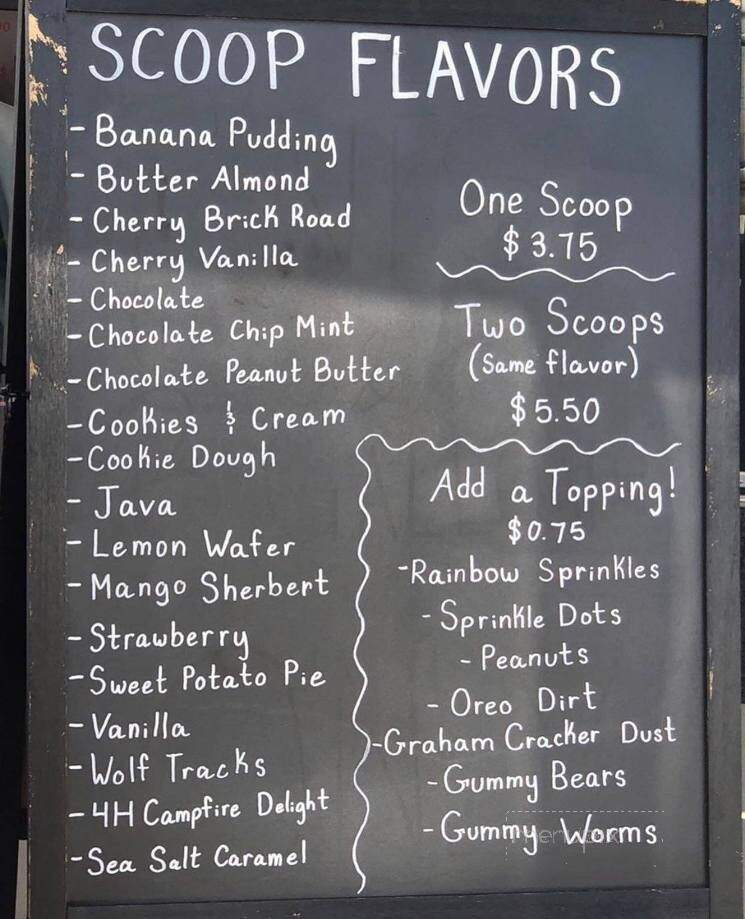 SCOOP FLAVORS
- Banana Pudding
- Butter Almond
- Cherry Brick Road
- Cherry Vanilla
- Chocolate
- Chocolate Chip Mint
- Chocolate Peanut Butter
- Cookies & Cream
- Cookie Dough
- Java
- Lemon Wafer
- Mango Sherbert
- Strawberry
- Sweet Potato Pie
- Vanilla
- Wolf Tracks
- 4H Campfire Delight
- Sea Salt Caramel
One Scoop
$3.75
Two Scoops
(Same flavor)
$5.50
Add a Topping!
$0.75
- Rainbow Sprinkles
- Sprinkle Dots
- Peanuts
- Oreo Dirt
- Graham Cracker Dust
- Gummy Bears
- Gummy Worms